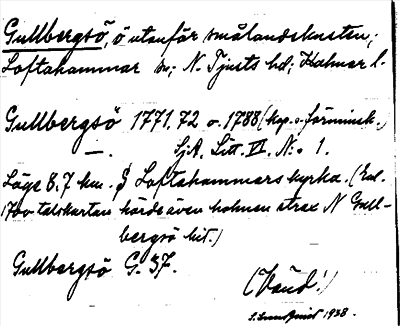 Gullbergsö, ö utanför smålandskusten;
Loftahammar sn; N. Tjusts hd; Kalmar l.
Gullbergsö 1771, 72 o. 1788 (kop. o. förminsk.)
—. SjA. Litt. VI. N:o 1.
Läge 8,7 km. S Loftahammars kyrka. (Enl.
1700 talskartan hörde även holmen strax N Gull-
bergsö hit.)
Gullbergsö G. 37.
(Vänd!)
1938.